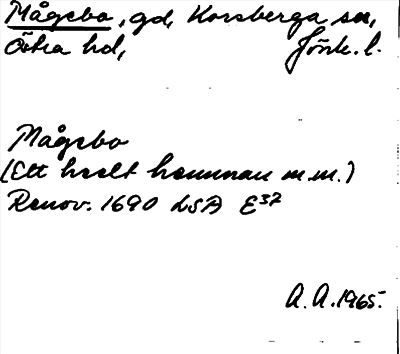 Mågebo, gd, Korsberga sn,
Östra hd, Jönk. l.
Mågebo
(Ett heelt hemman m.m.)
Renov. 1690 LSA E37
A. A. 1965.